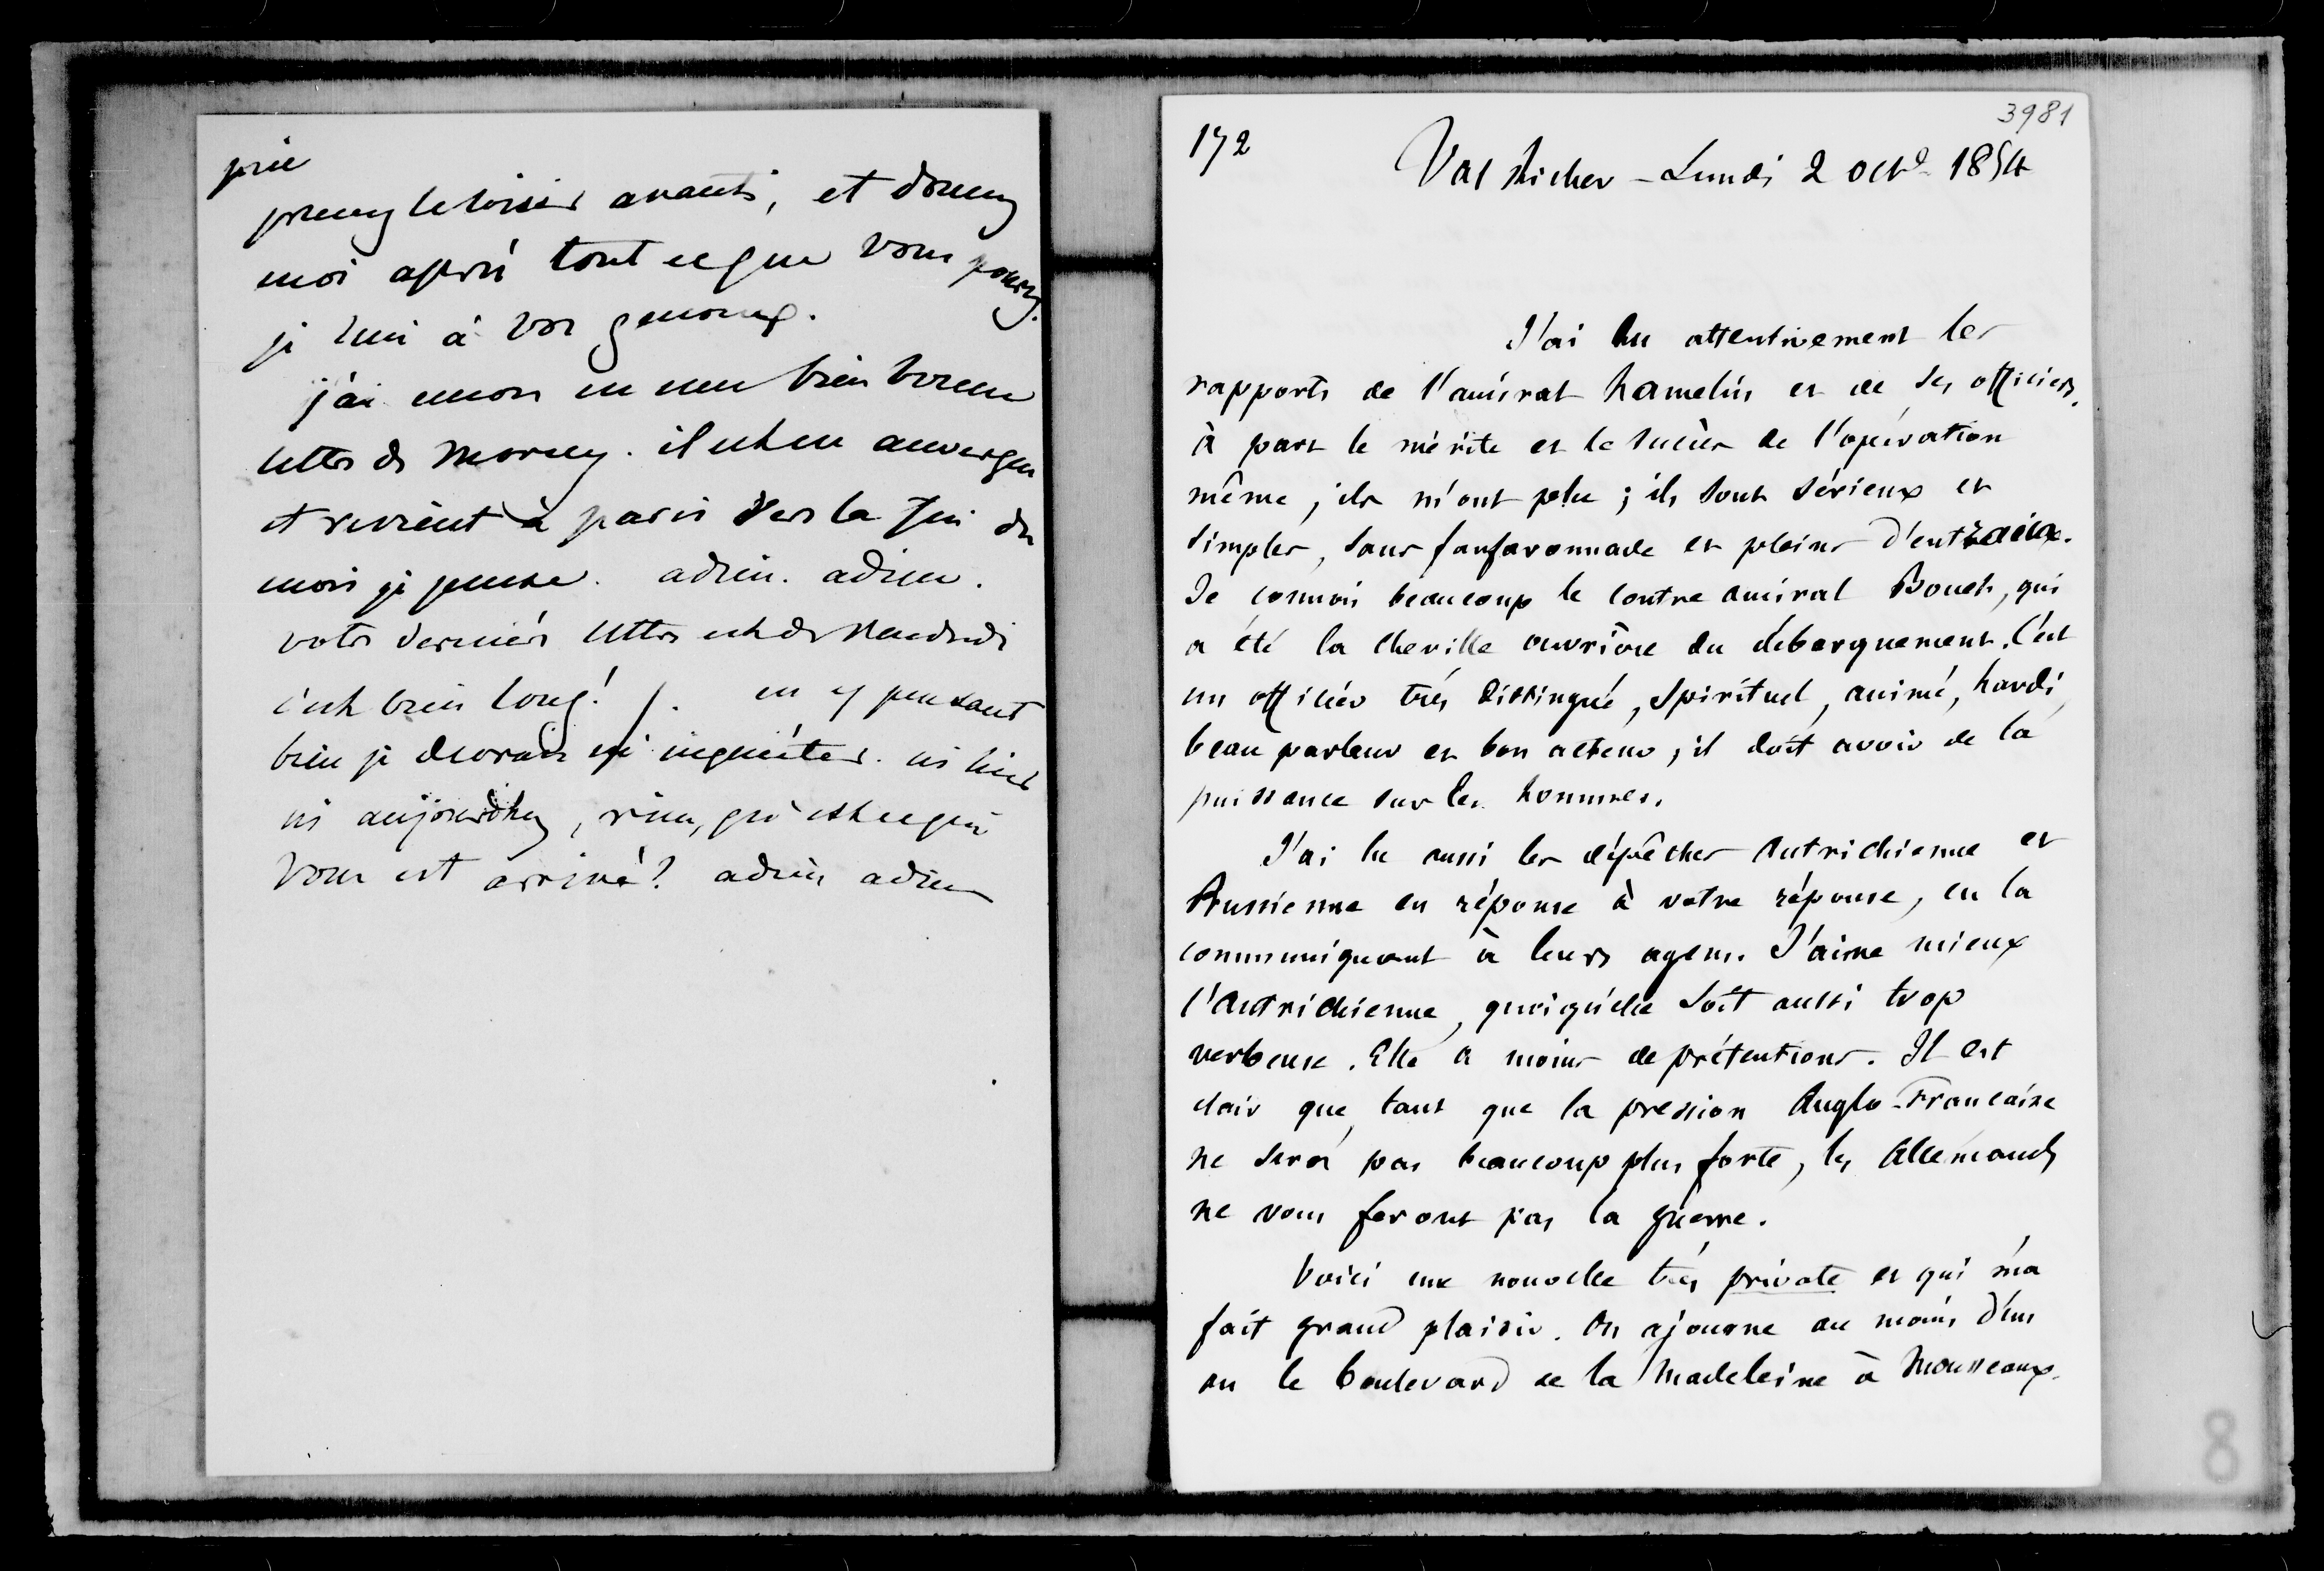 prie
prenez le loisir avant, et donnez
moi après tout ce que vous pouvez.
je suis à vos genoux.
j'ai encore eu une bien bonne
lettre de Morny. il est en auvergne
et revient à paris vers la fin du
mois je pense. adieu. adieu.
votre dernière lettre est de vendredi
c'est bien long! en y pensant
bien je devrais m'inquiéter. ni hier
ni aujourdhuy, rien, qu'est ce qui
vous est arrivé? adieu adieu
3981
172
Val Richer - Lundi 2 oct. 1854
J'ai lu attentivement les
rapports de l'amiral hamelin et de ses officiers.
à part le mérite et le succès de l'opération
même, ils m'ont plu ; ils sont sérieux et
simples, sans fanfaronnade et pleins d'entrain.
Je connois beaucoup le contre amiral Bouet, qui
a été la cheville ouvrière du débarquement. C'est
un officier très distingué, spirituel, animé, hardi,
beau parleur et bon acteur ; il doit avoir de la
puissance sur les hommes.
J'ai lu aussi les dépêches Autrichienne et
Prussienne en réponse à votre réponse, en la
communiquant à leurs agens. J'aime mieux
l'Autrichienne, quoiqu'elle soit aussi trop
verbeuse. Elle a moins de prétentions. Il est
clair que, tant que la pression Anglo-Francaise
ne sera pas beaucoup plus forte, les Allemands
ne vous feront pas la guerre.
Voici une nouvelle très private et qui m'a
fait grand plaisir. On ajourne au moins d'un
an le boulevard de la Madeleine à Mousseaux.
8